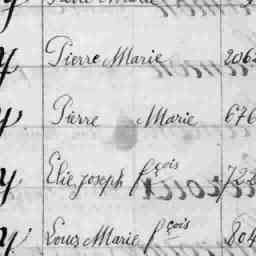 Pierre Marie
y Pierre Marie 2062
y Pierre Marie 676
y Elie Joseph fçois 722
y Louis Marie fçois 804